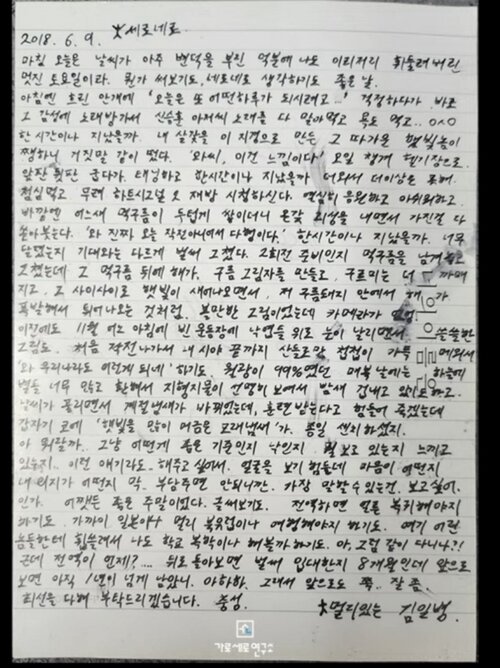 * 세로네로
2018. 6. 9.
마침 오늘은 날씨가 아주 변덕을 부린 덕분에 나도 이리저리 휘둘려버린
멋진 토요일이라. 뭔가 써보기도, 네로네로 생각하기도 좋은 날.
아침엔 흐린 안개에 '오늘은 또 어떤하루가 되시려고...' 걱정하다가 바로
그 감성에 노래방가서 신승훈 아저씨 소재를 다 알아먹고 목도 먹고.. ㅇㅅㅇ
한시간이나 지났을까. 내 살갗을 이 지경으로 만든 그 따가운 햇빛놈이
쨍하니 거짓말 같이 떴다. '와씨, 이건 느낌이다' 요일 챙겨 헬기장으로.
앞장 뒷판 굽다가. 태닝하고 한시간이나 지났을까 더워서 더이상은 못해.
점심먹고 무려 하트시그널 2 재방 시청하신다. 열심히 응원하고 아쉬워하고.
바깥엔 어느새 먹구름이 두텁게 쌓이더니 온갖 괴성을 내면서 가진걸 다
쏟아붓는다. '와 진짜 오늘 작전아니여서 다행이다.' 한시간이나 지났을까. 너무
달렸는지 기대와는 다르게 벌써 그쳤다. 2회전 준비인지 먹구름을 남겨놓고
그쳤는데 그 먹구름 뒤에 해가. 구름 그림자를 만들고, 구르미는 더 까매
지고, 그 사이사이로 햇빛이 새어나오면서, 저 구름돼지 안에서 해가
폭발해서 튀어나오는 것처럼. 볼만한 그림이었는데 카메라가 없었
이전에도 11월 어느 아침에 빈 운동장에 낙엽들 위로 눈이 날리면서 쓸쓸한
그림도. 처음 작전나가서 내 시야 끝까지 산등으로만 첩첩이 가득 메워서
'와 우리나라도 이렇게 되네' 하기도. 월광이 99%였던 매복 날에는 하늘에
별들 너무 많고 환해서 지형지물이 선명히 보여서 밤새 겁내고 있기도 하고.
날씨가 풀리면서 계절냄새가 바뀌었는데, 훈련받는다고 힘들어 죽겠는데
갑자기 코에 '햇빛을 많이 머금은 모래냄새'가. 종일 센치하셨지.
아 뭐랄까.. 그냥 어떻게 좁은 기준인지 낙인지 뭘 보고 있는지 느끼고
있는지.. 이런 얘기라도. 해주고 싶어서. 얼굴을 보기 힘든데 마음이 어떤지
내 위치가 어떤지 막. 부담주면 안되니깐. 가장 말할수 있는건. 보고싶어.
인가. 어쨌든 좋은 주말이었다. 글써보기도. 전역하면 얼른 복귀해야지
하기도. 가까이 일본이나 멀리 북유럽이나 여행해야지 하기도. 여기 어린
놈들한테 휩쓸려서 나도 학교 복학이나 해볼까하기도. 아, 그럼 같이 다니나?!
근데 전역이 언제?.... 뒤로 돌아보면 벌써 입대한지 8개월인데 앞으로
보면 아직 1년이 넘게 남았니. 아하하. 그래서 앞으로도 쭉. 잘 좀.
최선을 다해 부탁드리겠습니다. 충성.
*멀리있는 김일병.
가로세로연구소